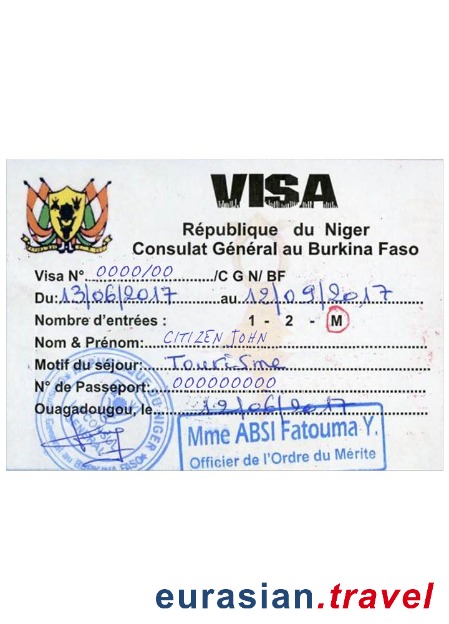 VISA
République du Niger
Consulat Général au Burkina Faso
Visa N° 0000/00 /C G N/ BF
Du: 13/06/2017 au 12/09/2017
Nombre d'entrées : 1 - 2 - M
Nom & Prénom: CITIZEN JOHN
Motif du séjour: Tourisme
N° de Passeport: 000000000
Ouagadougou, le 12/06/2017
Mme ABSI Fatouma Y.
Officier de l'Ordre du Mérite
eurasian.travel